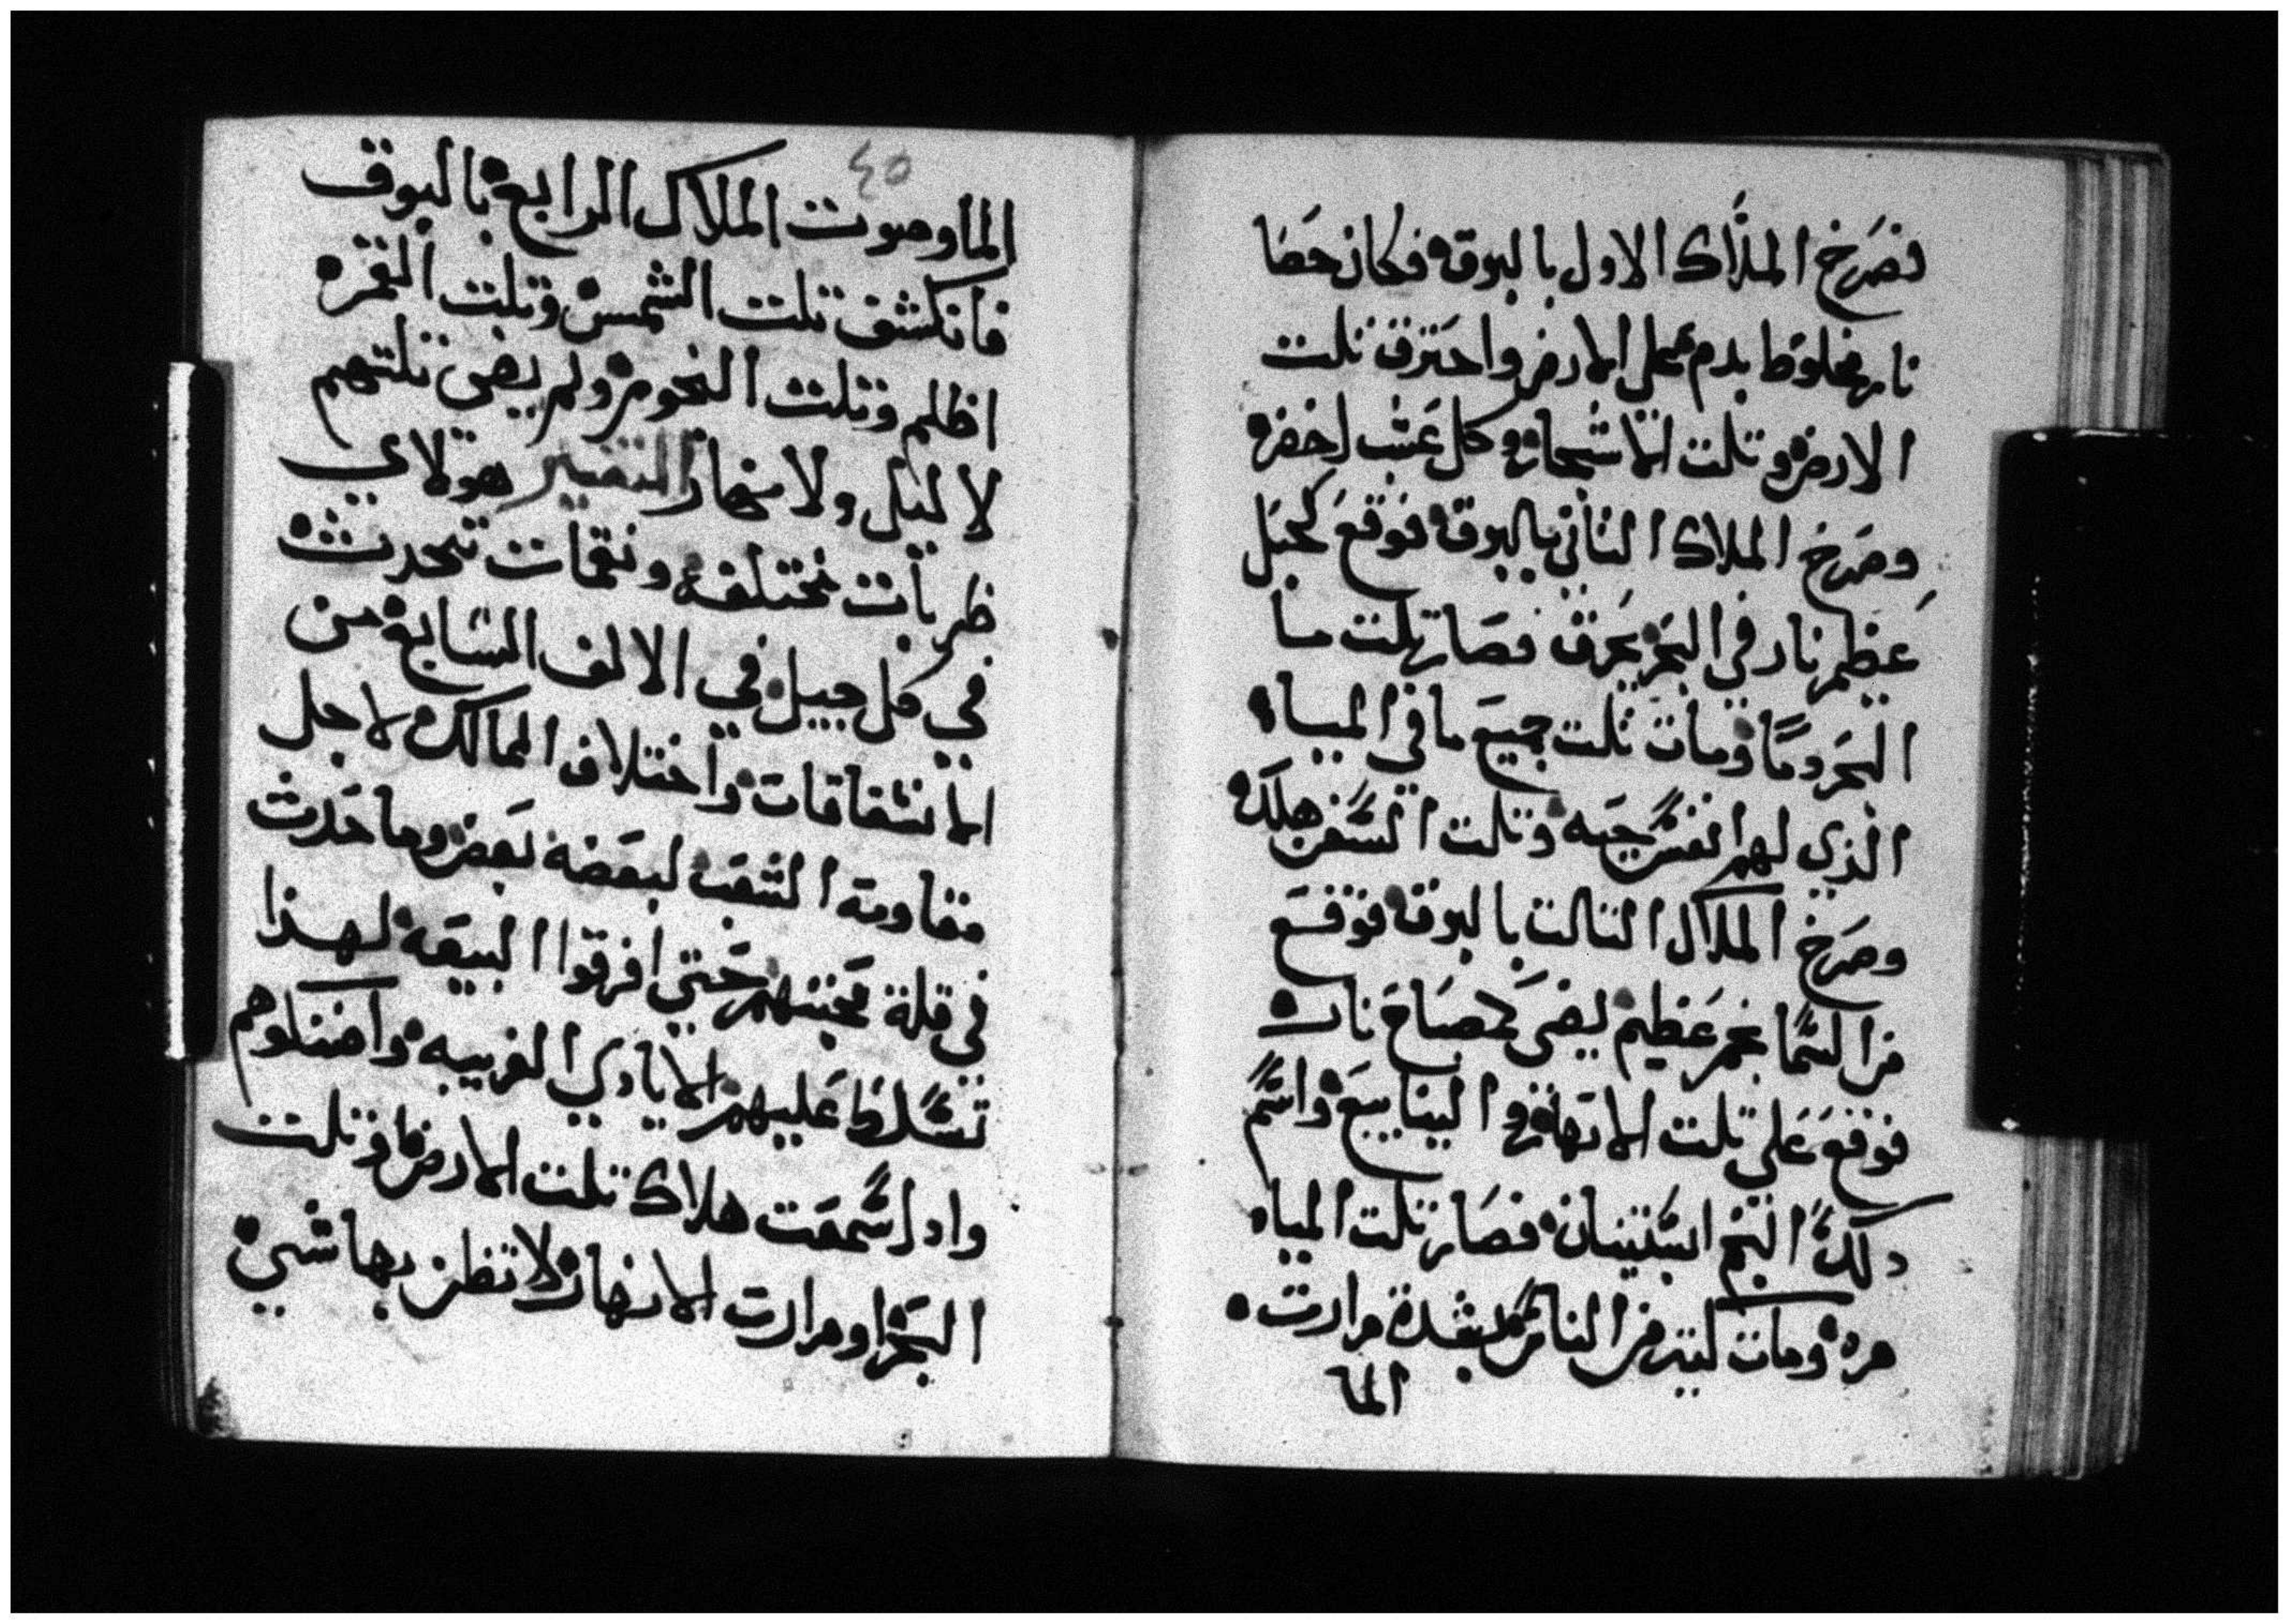 فصرخ الملاك الاول بالبوقه فكان حصا
نار مخلوط بدم على الارض واحترق تلت
الارض وتلت الاشجاره وكل عشب اخضره
وصرخ الملاك الثاني بالبوقه فوقع كجبل
عظيم نار في البحر يحرق فصار تلت ما
البحر دما ومات تلت جميع ما في المياه
الذي لهم انفس حيه وتلت السفن هلكه
وصرخ الملاك التالت بالبوقه فوقع
من السما نجم عظيم يضى كمصباح ناره
فوقع على تلت الانهار و الينابيع واسم
دلك النجم ابسنتينان فصار تلت المياه
مره ومات كتير من الناس لشدة مرارت
الما
٤٥
الما وصوت الملاك الرابع بالبوق
فانكشف تلت الشمس وتلت القمره
اظلم وتلت النجوم ولم يضى تلتهم
لا ليل ولا نهار التفسير هولاي
ظربات مختلفه ونقمات تحدث
في كل جيل في الالف السابعه من
الانشقاقات واختلاف الممالك لاجل
مقاومة الشعب لبعضه بعض وما حدث
في قلة محبتهم حتي افرقوا البيعه لهذا
تسلط عليهم الايادي الغريبه واضلوهم
وادا سمعت هلاك تلت الارض وتلت
البحر او مرارت الانهار لا تظن بها شي